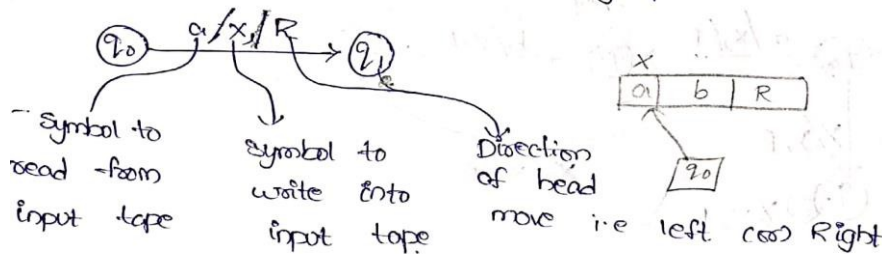 a/x/R
q0
q1
X
a b R
q0
- Symbol to
read from
input tape
symbol to
write into
input tape
Direction
of head
move i.e left (or) Right